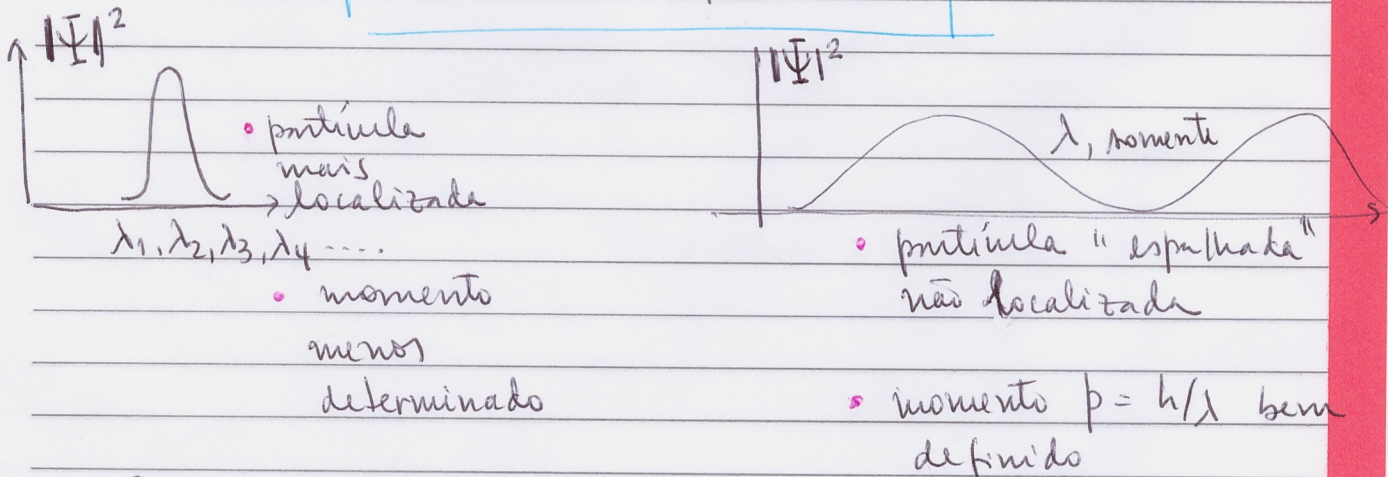 |Ψ|²
• partícula
mais
localizada
λ₁, λ₂, λ₃, λ₄ ....
• momento
menos
determinado
|Ψ|²
λ, somente
• partícula "espalhada"
não localizada
• momento p = h/λ bem
definido